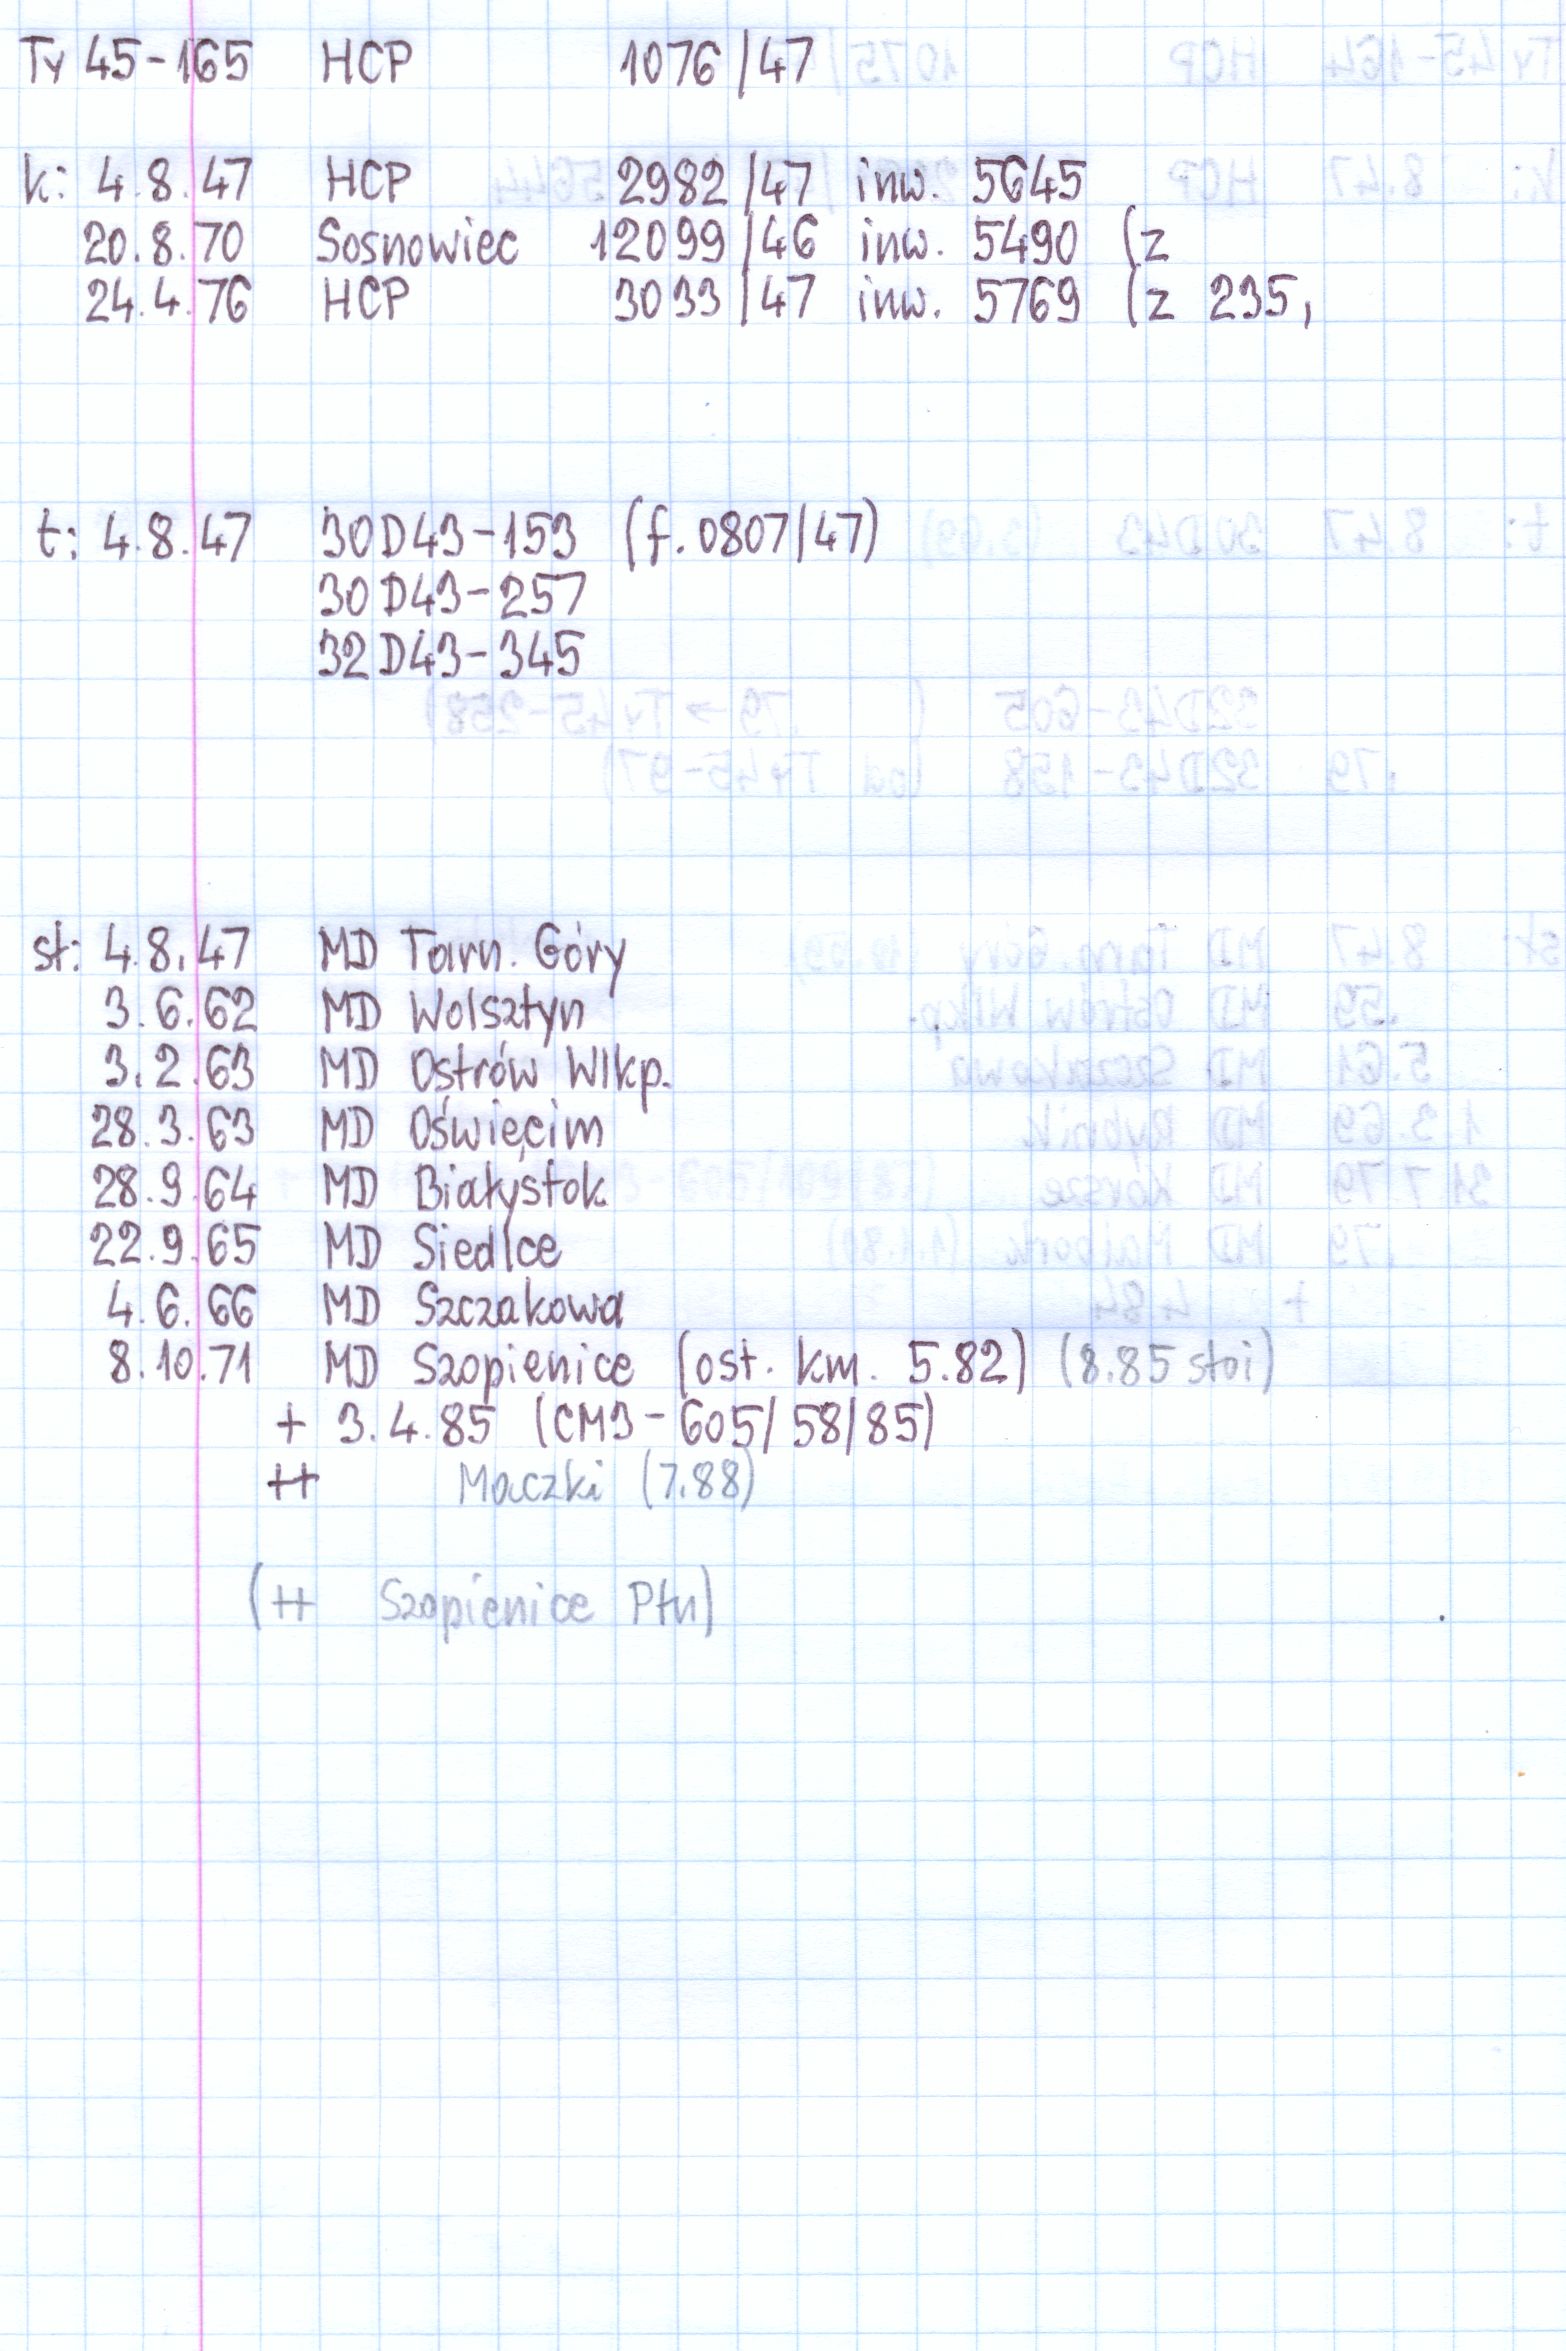 Ty 45-165 HCP 1076/47
k: 4.8.47 HCP 2982/47 inw. 5645
20.8.70 Sosnowiec 12099/46 inw. 5490 (z
24.4.76 HCP 3033/47 inw. 5769 (z 235,
t: 4.8.47 30D43-153 (f.0807/47)
30D43-257
32D43-345
st: 4.8.47 MD Tarn. Góry
3.6.62 MD Wolsztyn
3.2.63 MD Ostrów Wlkp.
28.3.63 MD Oświęcim
28.9.64 MD Białystok
22.9.65 MD Siedlce
4.6.66 MD Szczakowa
8.10.71 MD Szopienice (ost. km. 5.82) (8.85 stoi)
+ 3.4.85 (CM3-605/58/85)
++ Maczki (7.88)
(++ Szopienice Płn)